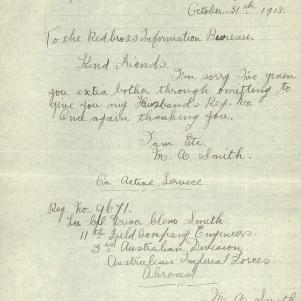 October 31th 1918.
To the Red Cross Information Bureau.
Kind Friends.
I'm sorry I've given
you extra bother through omitting to
give you my Husband's Reg. No
Once again thanking you.
I am Etc.
M. A. Smith.
On Active Service
Reg. No. 9671.
Smith.
11th Field Company Engineers.
3rd Australian Division
Australian Imperial Forces.
Abroad
M. A. Smith